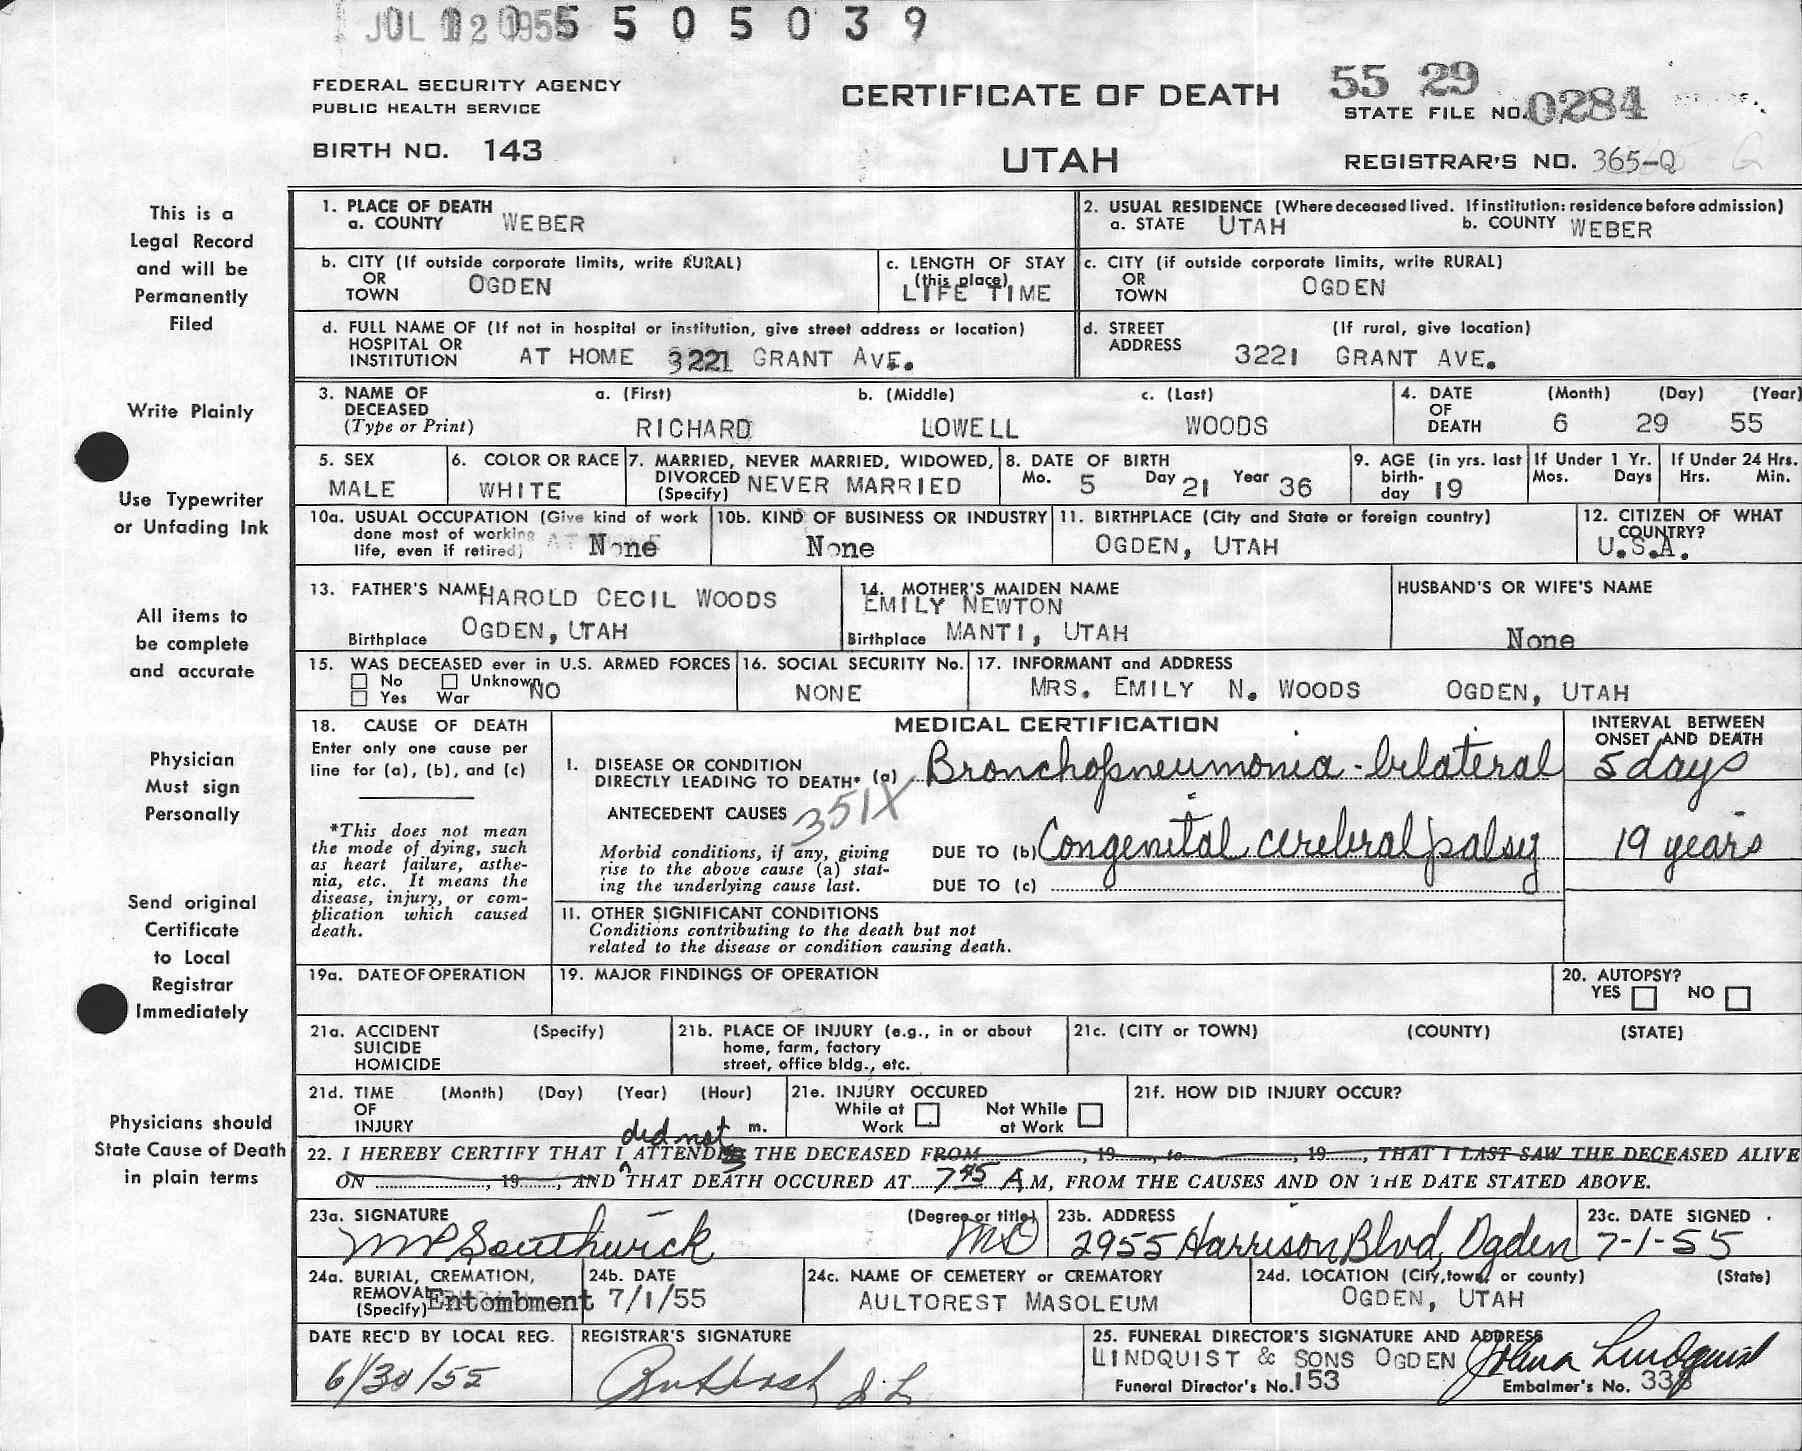 JUL 12 1955 5 5 0 5 0 3 9
FEDERAL SECURITY AGENCY
PUBLIC HEALTH SERVICE
CERTIFICATE OF DEATH
55 29
STATE FILE NO. 0284
BIRTH NO. 143
UTAH
REGISTRAR'S NO. 365-Q
This is a
Legal Record
and will be
Permanently
Filed
Write Plainly
Use Typewriter
or Unfading Ink
All items to
be complete
and accurate
Physician
Must sign
Personally
Send original
Certificate
to Local
Registrar
Immediately
Physicians should
State Cause of Death
in plain terms
1. PLACE OF DEATH
a. COUNTY WEBER
2. USUAL RESIDENCE (Where deceased lived. If institution: residence before admission)
a. STATE UTAH b. COUNTY WEBER
b. CITY (If outside corporate limits, write RURAL)
OR
TOWN OGDEN
c. LENGTH OF STAY
(this place)
LIFE TIME
c. CITY (if outside corporate limits, write RURAL)
OR
TOWN OGDEN
d. FULL NAME OF (If not in hospital or institution, give street address or location)
HOSPITAL OR
INSTITUTION AT HOME 3221 GRANT AVE.
d. STREET (If rural, give location)
ADDRESS 3221 GRANT AVE.
3. NAME OF a. (First) b. (Middle) c. (Last)
DECEASED
(Type or Print) RICHARD LOWELL WOODS
4. DATE (Month) (Day) (Year)
OF
DEATH 6 29 55
5. SEX
MALE
6. COLOR OR RACE
WHITE
7. MARRIED, NEVER MARRIED, WIDOWED,
DIVORCED
(Specify) NEVER MARRIED
8. DATE OF BIRTH
Mo. 5 Day 21 Year 36
9. AGE (in yrs. last
birth-
day 19
If Under 1 Yr.
Mos. Days
If Under 24 Hrs.
Hrs. Min.
10a. USUAL OCCUPATION (Give kind of work
done most of working
life, even if retired) None
10b. KIND OF BUSINESS OR INDUSTRY
None
11. BIRTHPLACE (City and State or foreign country)
OGDEN, UTAH
12. CITIZEN OF WHAT
COUNTRY?
U.S.A.
13. FATHER'S NAME HAROLD CECIL WOODS
Birthplace OGDEN, UTAH
14. MOTHER'S MAIDEN NAME
EMILY NEWTON
Birthplace MANTI, UTAH
HUSBAND'S OR WIFE'S NAME
None
15. WAS DECEASED ever in U.S. ARMED FORCES
No Unknown NO
Yes War
16. SOCIAL SECURITY No.
NONE
17. INFORMANT and ADDRESS
MRS. EMILY N. WOODS OGDEN, UTAH
18. CAUSE OF DEATH
Enter only one cause per
line for (a), (b), and (c)
*This does not mean
the mode of dying, such
as heart failure, asthe-
nia, etc. It means the
disease, injury, or com-
plication which caused
death.
MEDICAL CERTIFICATION
INTERVAL BETWEEN
ONSET AND DEATH
I. DISEASE OR CONDITION
DIRECTLY LEADING TO DEATH* (a) Bronchopneumonia - bilateral 5 days
ANTECEDENT CAUSES 351X
Morbid conditions, if any, giving
rise to the above cause (a) stat-
ing the underlying cause last.
DUE TO (b) Congenital cerebral palsy 19 years
DUE TO (c)
II. OTHER SIGNIFICANT CONDITIONS
Conditions contributing to the death but not
related to the disease or condition causing death.
19a. DATE OF OPERATION
19. MAJOR FINDINGS OF OPERATION
20. AUTOPSY?
YES NO
21a. ACCIDENT (Specify)
SUICIDE
HOMICIDE
21b. PLACE OF INJURY (e.g., in or about
home, farm, factory
street, office bldg., etc.
21c. (CITY or TOWN) (COUNTY) (STATE)
21d. TIME (Month) (Day) (Year) (Hour)
OF
INJURY m.
21e. INJURY OCCURED
While at Work Not While at Work
21f. HOW DID INJURY OCCUR?
did not
22. I HEREBY CERTIFY THAT I ATTENDED THE DECEASED FROM , 19 , to , 19 , THAT I LAST SAW THE DECEASED ALIVE
ON , 19 , AND THAT DEATH OCCURED AT 7 45 A.M, FROM THE CAUSES AND ON THE DATE STATED ABOVE.
23a. SIGNATURE (Degree or title)
MP Southwick MD
23b. ADDRESS
2955 Harrison Blvd, Ogden
23c. DATE SIGNED
7-1-55
24a. BURIAL, CREMATION,
REMOVAL
(Specify) Entombment
24b. DATE
7/1/55
24c. NAME OF CEMETERY or CREMATORY
AULTOREST MASOLEUM
24d. LOCATION (City, town, or county) (State)
OGDEN, UTAH
DATE REC'D BY LOCAL REG.
6/30/55
REGISTRAR'S SIGNATURE
25. FUNERAL DIRECTOR'S SIGNATURE AND ADDRESS
LINDQUIST & SONS OGDEN
Funeral Director's No. 153 Embalmer's No. 338